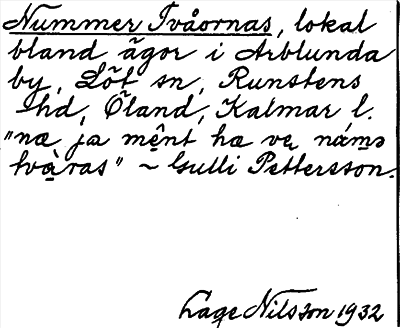 Nummer Tvåornas, lokal
bland ägor i Arblunda
by, Löt sn, Runstens
hd, Öland, Kalmar l.
"næ ja męnt hæ vę námə
tvàras" ~ Gulli Pettersson.
Lage Nilsson 1932